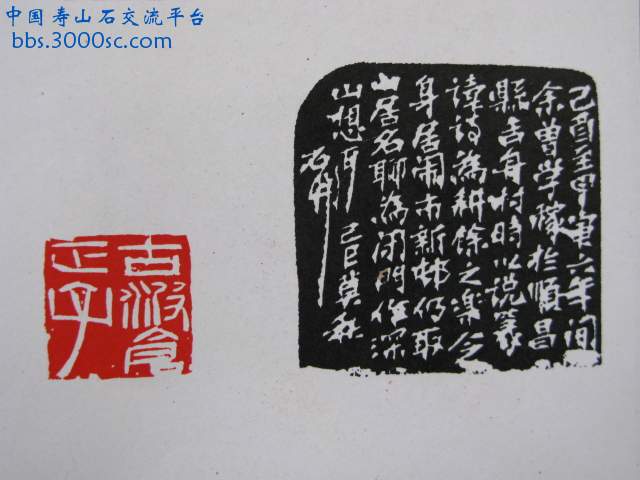 中国寿山石交流平台
bbs.3000sc.com
己酉至甲寅六年间
余曾学稼於順昌
縣吉舟村時以说篆
读诗為耕馀之樂今
身居闹市新邨仍取
山居名聊為闭门作深
山想耳 己巳莫春
石开
古
正